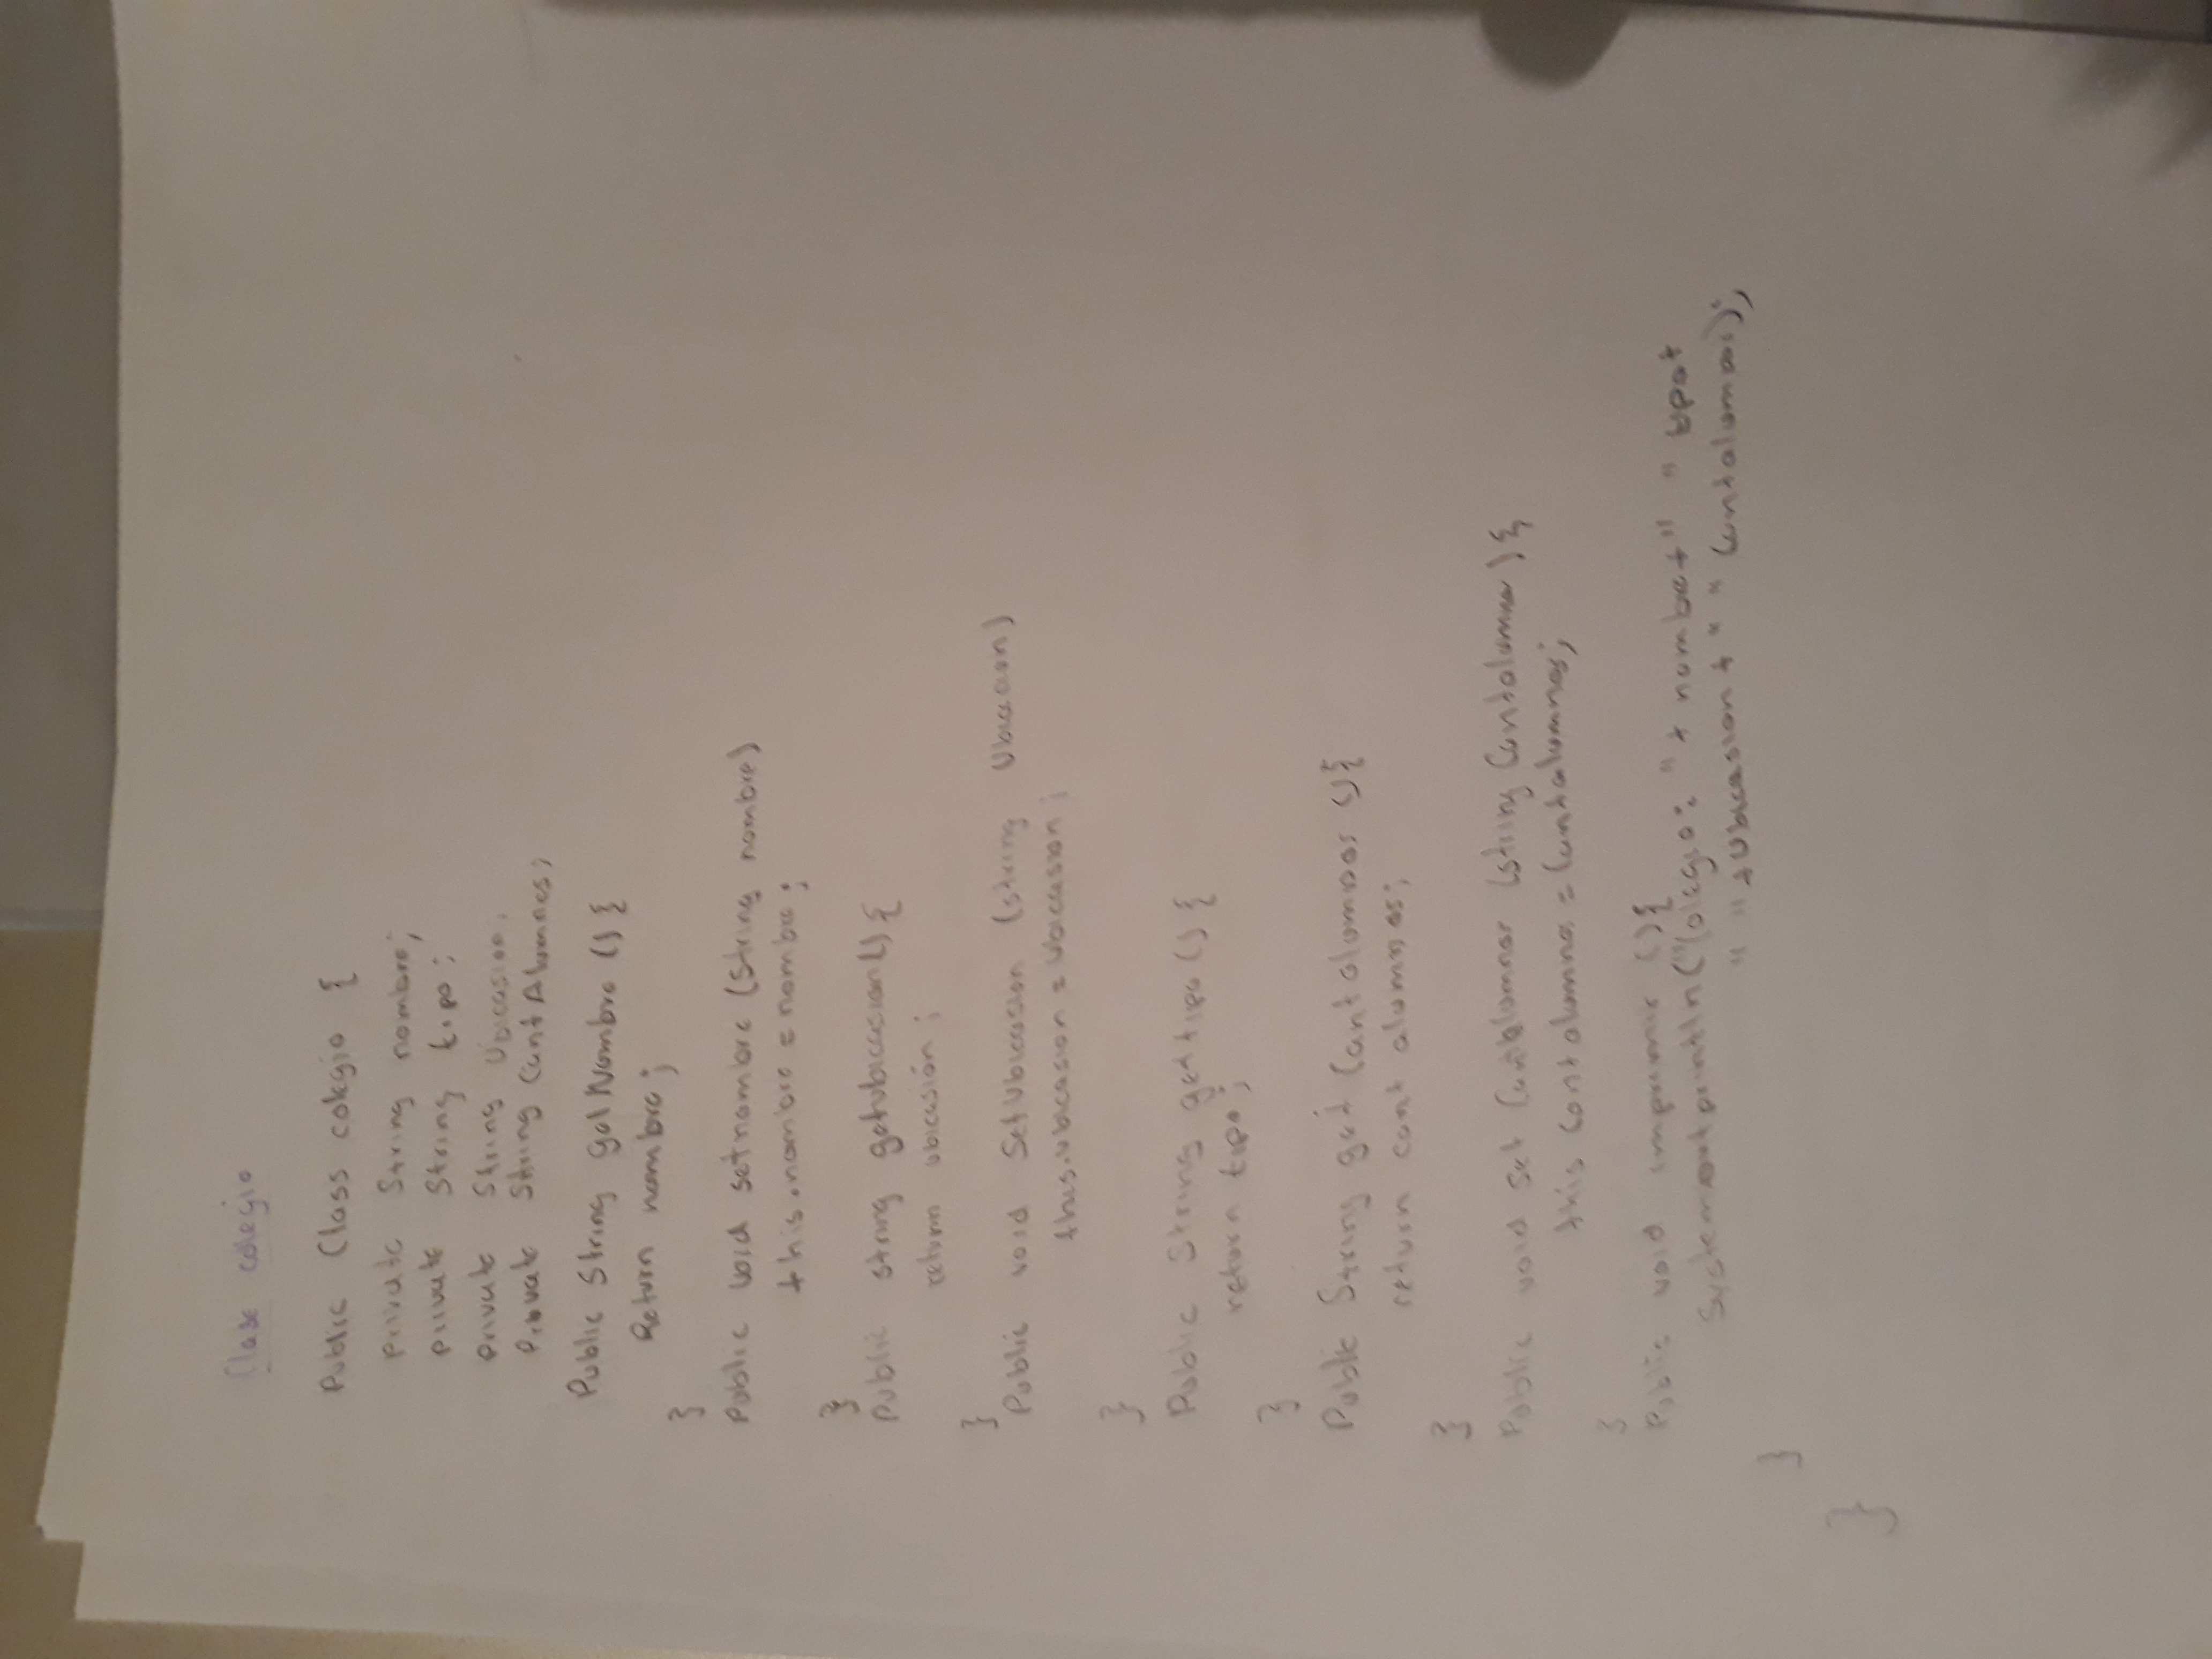 Clase colegio
Public Class colegio {
private String nombre;
private String tipo;
private String Ubicasion;
Private String CantAlumnos;
Public String getNombre () {
Return nombre;
}
Public void setnombre (String nombre)
this.nombre = nombre;
}
Public string getubicasion() {
return ubicasión;
}
Public void SetUbicasion (string Ubicacion)
this.ubicasion = Ubicasion;
}
Public String get tipo () {
return tipo;
}
Public String get Cantalumnos () {
return cant alumnos;
}
Public void set Cantalumnos (string Cantalumno) {
this Cantalumnos = Cantalumnos;
}
Public void imprimir () {
System out println ("Colegio: " + nombre + " " tipo +
" " + Ubicasion + " " Cantalumnos);
}
}